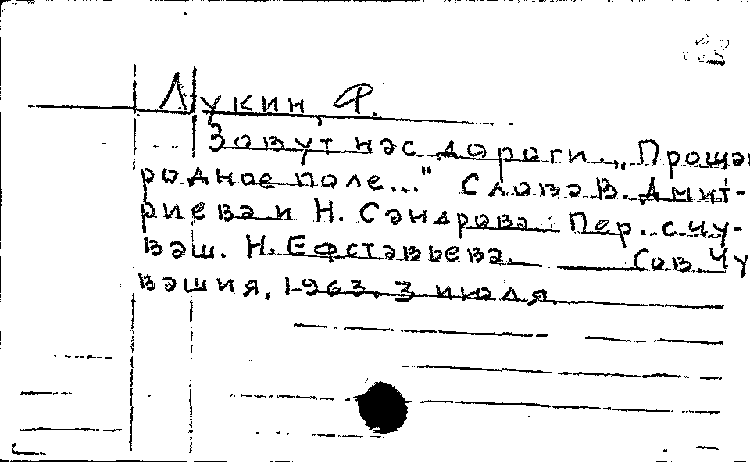 Лукин, Ф.
Зовут нас дороги. „Прощай
родное поле..." Слова В. Дмит-
риева и Н. Сандрова. Пер. с чу-
ваш. Н. Евставьева. Сов. Чу
вашия, 1963. 3 июля.